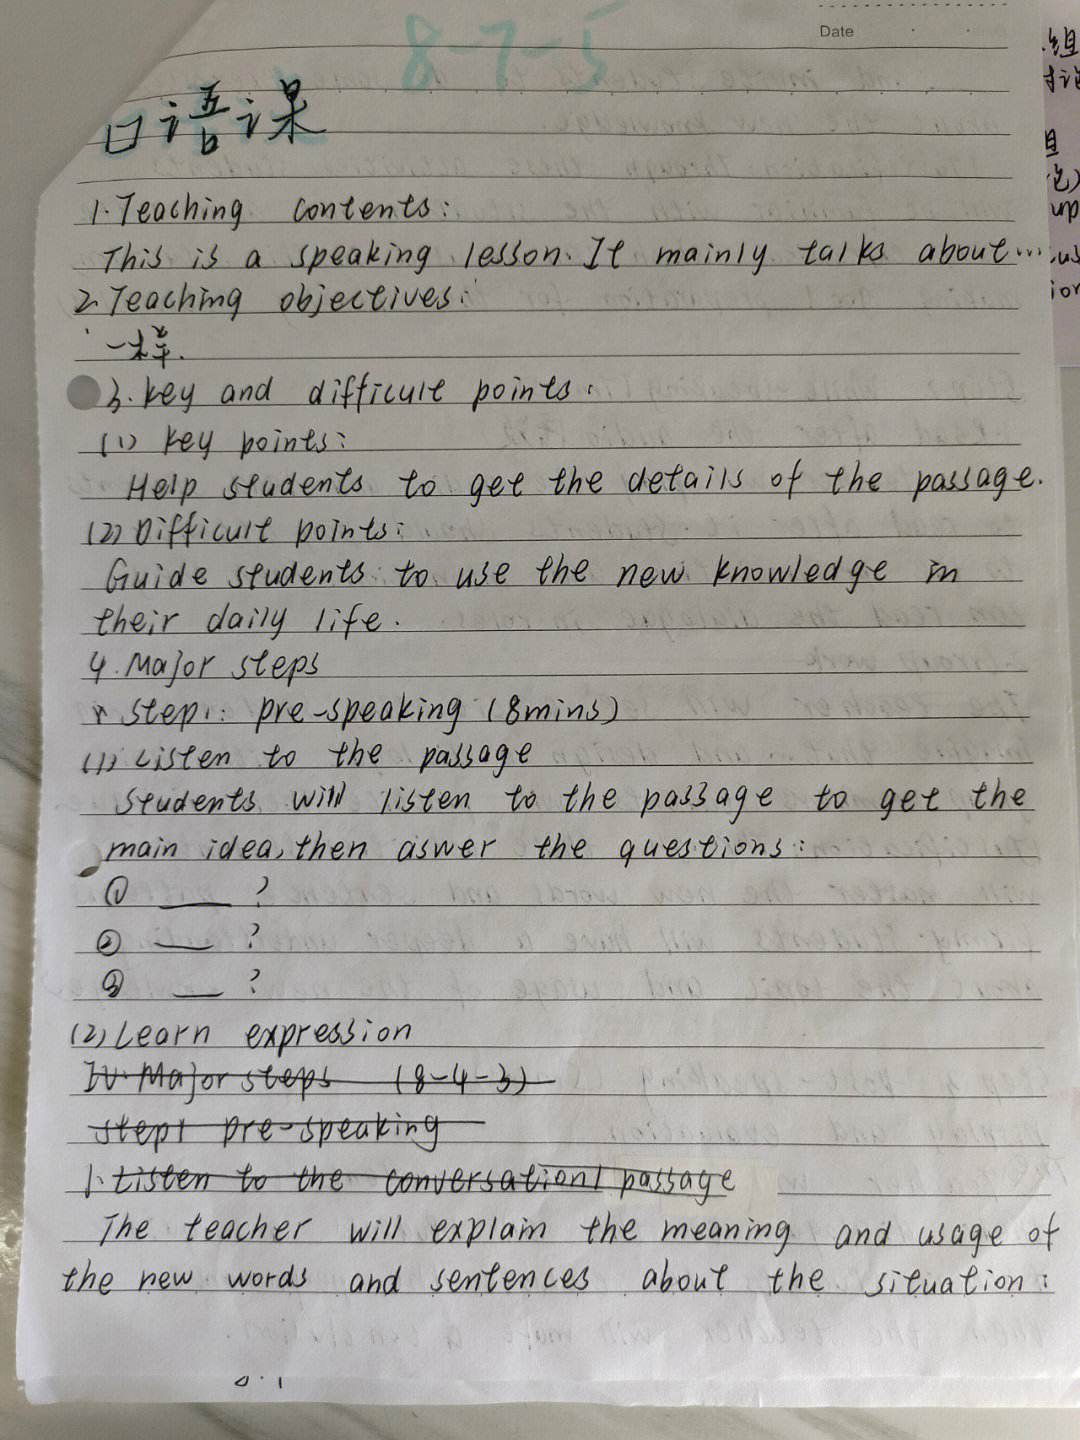 Date
8-7-5
口语课
1. Teaching contents:
This is a speaking lesson. It mainly talks about...
2. Teaching objectives:
一样.
3. key and difficult points:
(1) key points:
Help students to get the details of the passage.
(2) Difficult points:
Guide students to use the new knowledge in
their daily life.
4. Major steps
step1: pre-speaking (8mins)
(1) Listen to the passage
Students will listen to the passage to get the
main idea, then aswer the questions:
① ___ ?
② ___ ?
③ ___ ?
(2) Learn expression
IV. Major steps (8-4-3)
step1 pre-speaking
1. Listen to the conversation/passage
The teacher will explain the meaning and usage of
the new words and sentences about the situation: